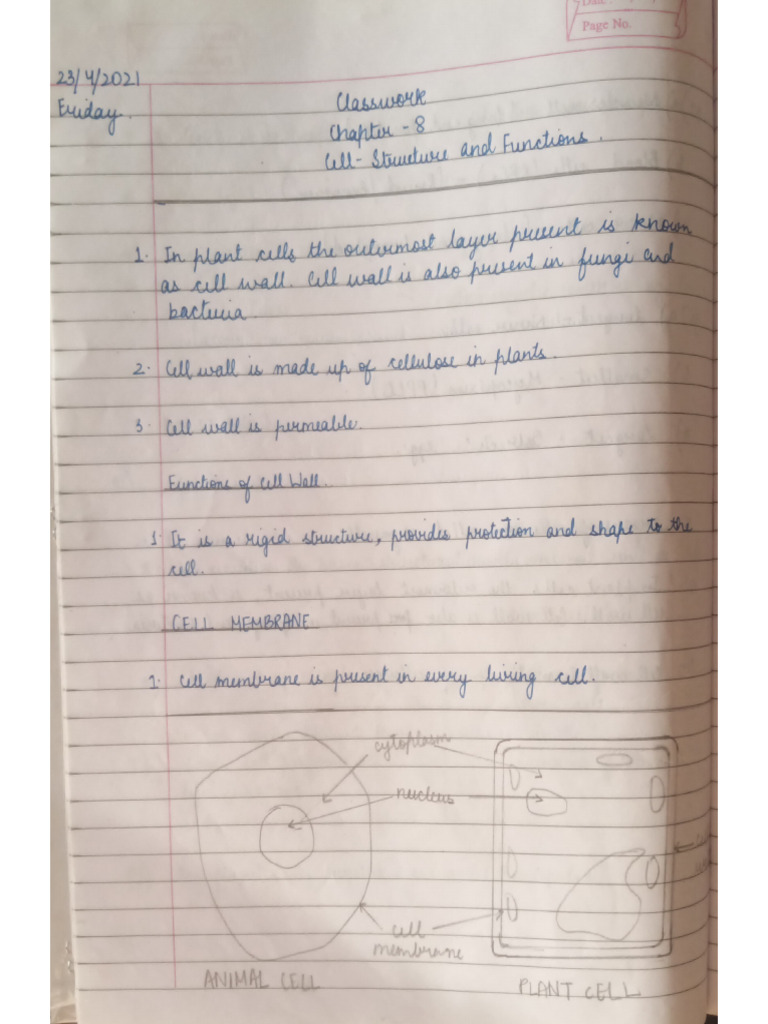 Date:
Page No.
23/4/2021
Friday.
Classwork
Chapter - 8
Cell- Structure and Functions.
1. In plant cells the outermost layer present is known
as cell wall. Cell wall is also present in fungi and
bacteria.
2. Cell wall is made up of cellulose in plants.
3. Cell wall is permeable.
Functions of Cell Wall.
1. It is a rigid structure, provides protection and shape to the
cell.
CELL MEMBRANE
1. Cell membrane is present in every living cell.
cytoplasm
nucleus
cell
membrane
ANIMAL CELL
PLANT CELL